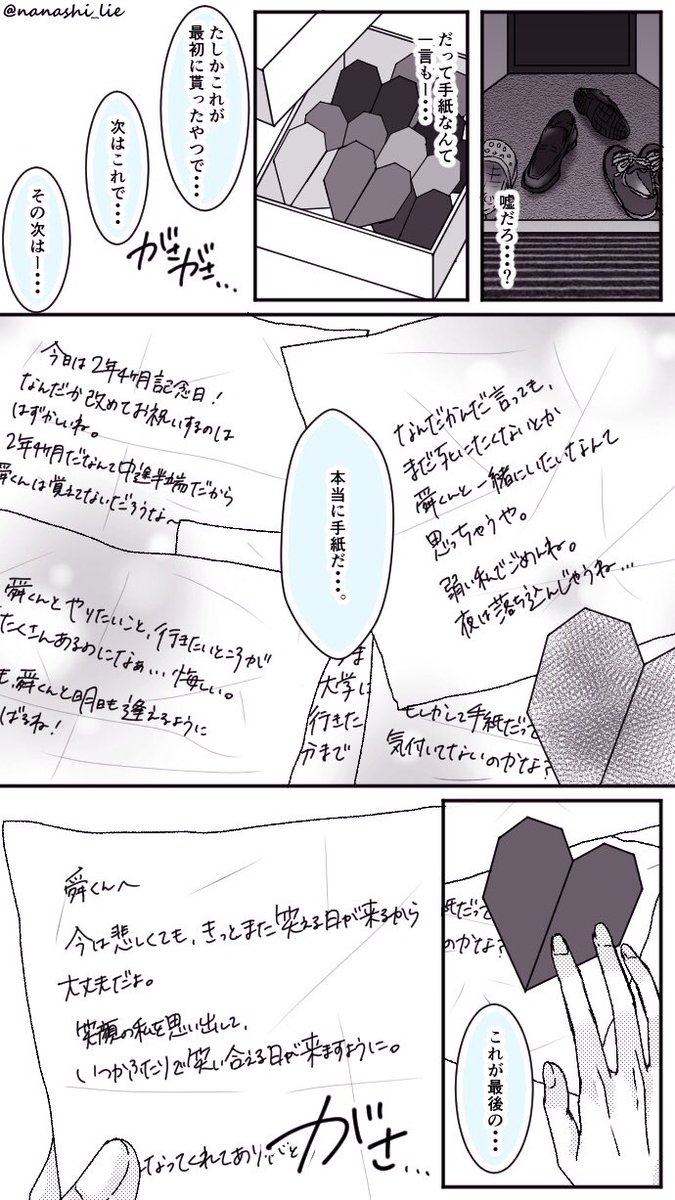 @nanashi_lie
嘘だろ・・・?
だって手紙なんて
一言もー・・・
たしかこれが
最初に貰ったやつで・・・
次はこれで・・・
その次はー・・・
がさがさ…
なんだかんだ言っても、
まだ死にたくないとか
舜くんと一緒にいたいなんて
思っちゃうや。
弱い私でごめんね。
夜は落ち込んじゃうね…
今日は2年4ヶ月記念日!
なんだか改めてお祝いするのは
はずかしいね。
2年4ヶ月だなんて中途半端だから
舜くんは覚えてないだろうな~
本当に手紙だ・・・。
舜くんとやりたいこと、行きたいところが
たくさんあるのになぁ…悔しい。
も、舜くんと明日も逢えるように
ばるね!
大学に
行きた
かまで
もしかして手紙だって
気付いてないのかな?
紙だって
のかな?
これが最後の・・・
舜くんへ
今は悲しくても、きっとまた笑える日が来るから
大丈夫だよ。
笑顔の私を思い出して、
いつかふたりで笑い合える日が来ますように。
なってくれてあり
がさ…